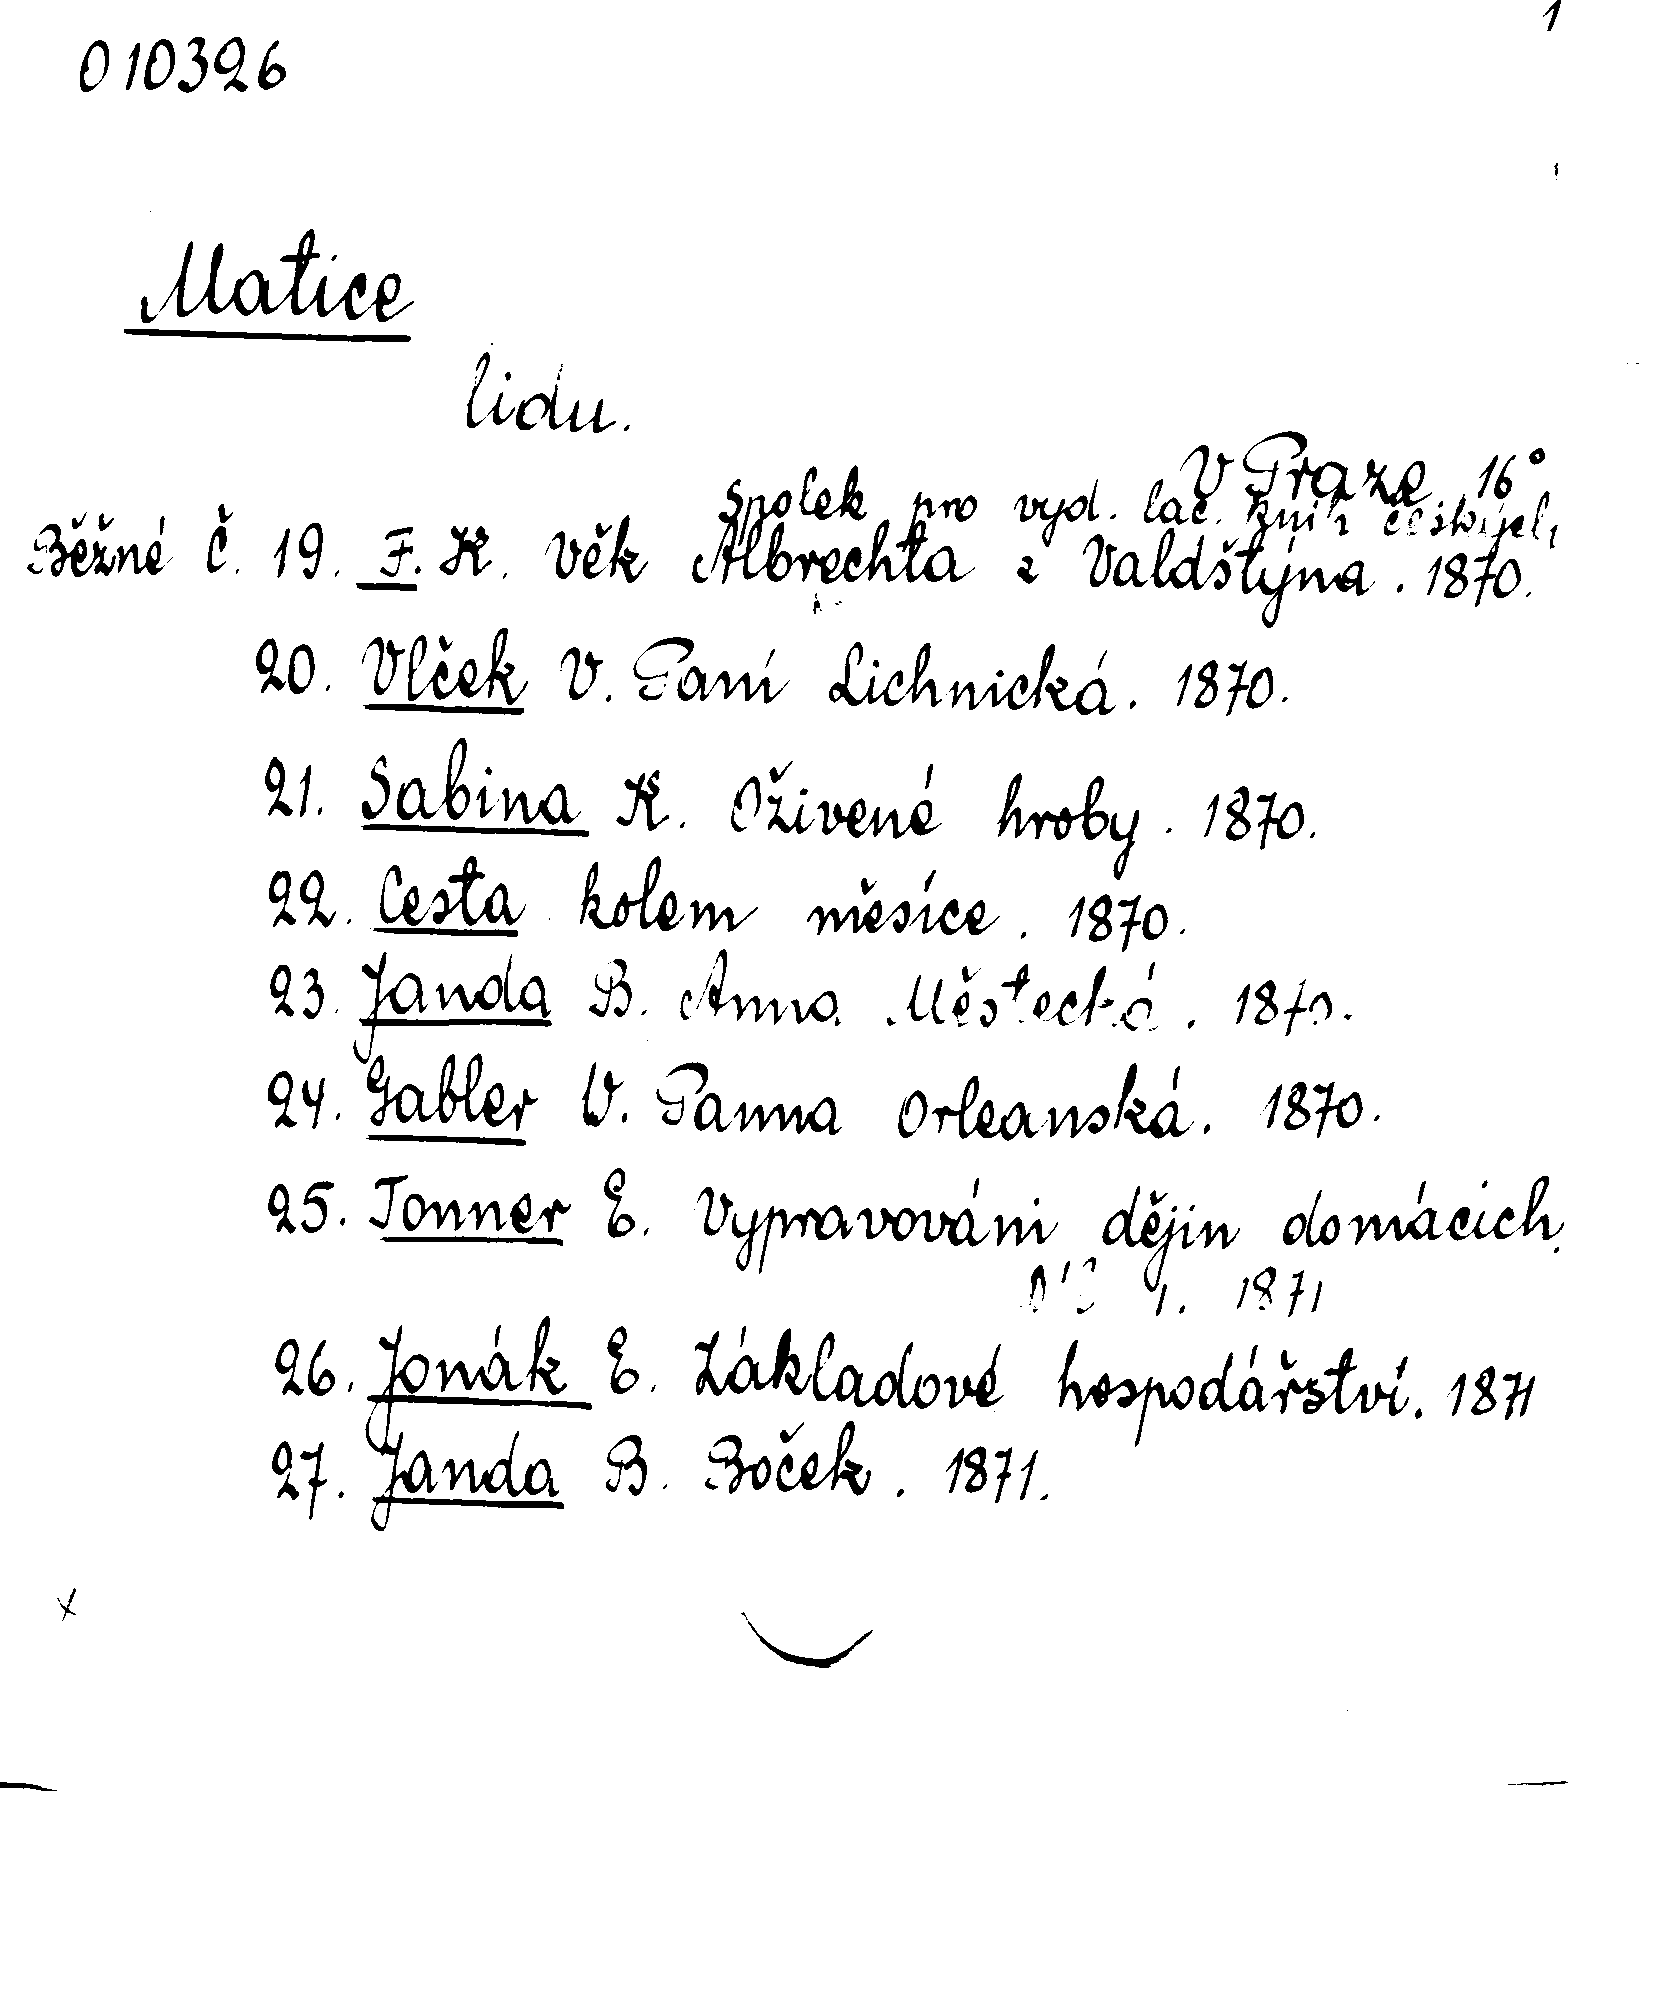 1
010326
Matice
lidu.
V Praze 16°
spolek pro vyd. lac. knih českých
Běžné č. 19. F. K. Věk Albrechta z Valdštýna. 1870.
20. Vlček V. Paní Lichnická. 1870.
21. Sabina K. Oživené hroby. 1870.
22. Cesta kolem měsíce. 1870.
23. Janda B. Anna Městecká. 1870.
24. Gabler V. Panna Orleanská. 1870.
25. Tonner E. Vypravování dějin domácích.
1. 1871
26. Jonák E. Základové hospodářství. 1871
27. Janda B. Boček. 1871.
x